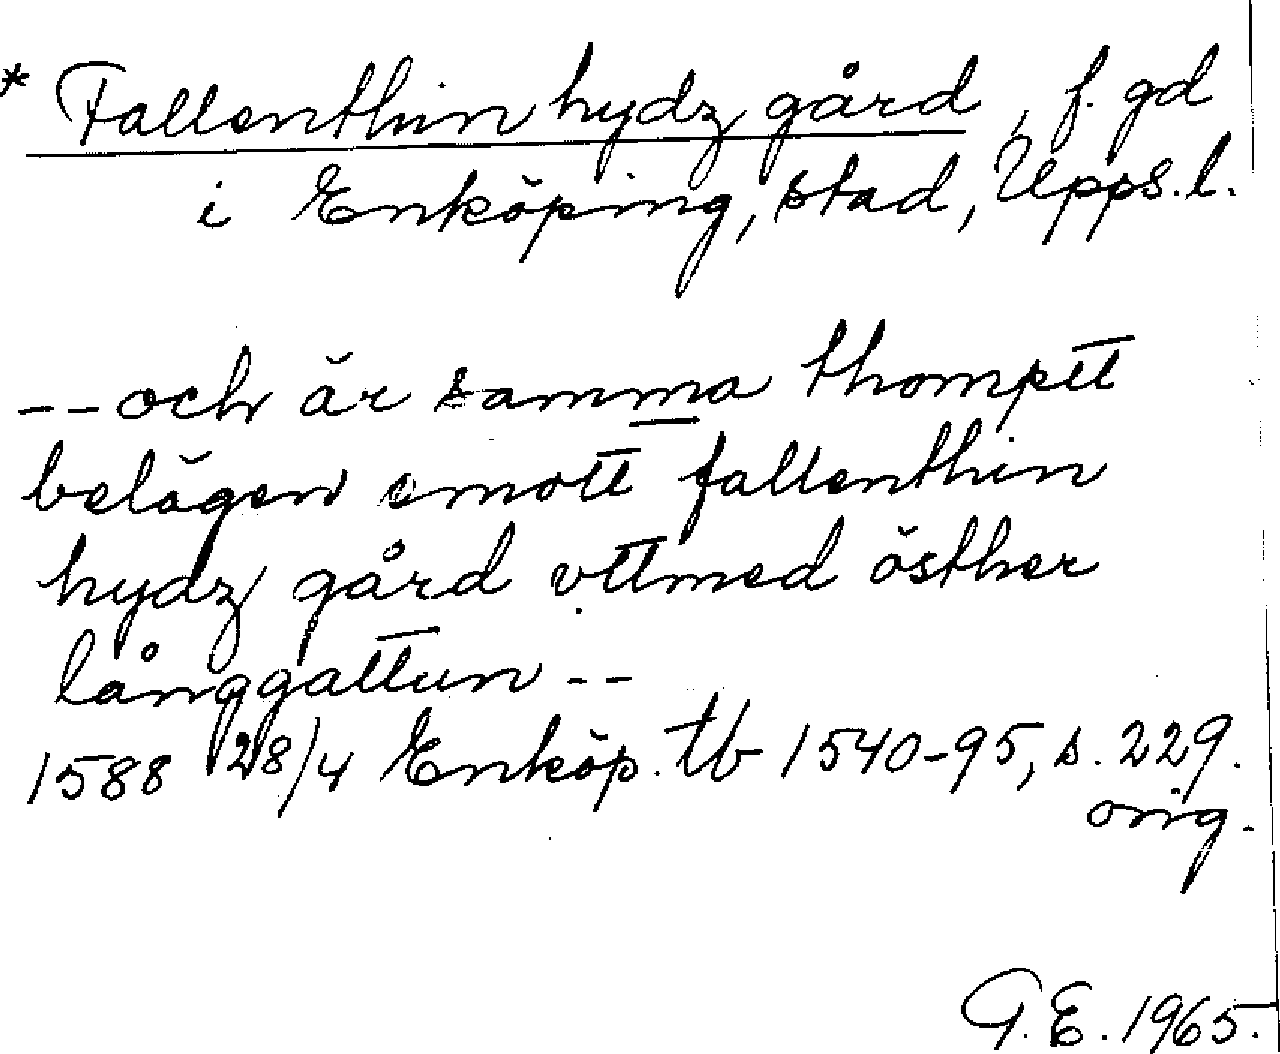 * Fallenthin hydz gård, f. gd
i Enköping, stad, Upps. l.
-- och är samma thomptt
belägen emott fallenthin
hydz gård vttmed östher
långgattun --
1588 28/4 Enköp. tb 1540-95, s. 229.
orig.
G.E. 1965.